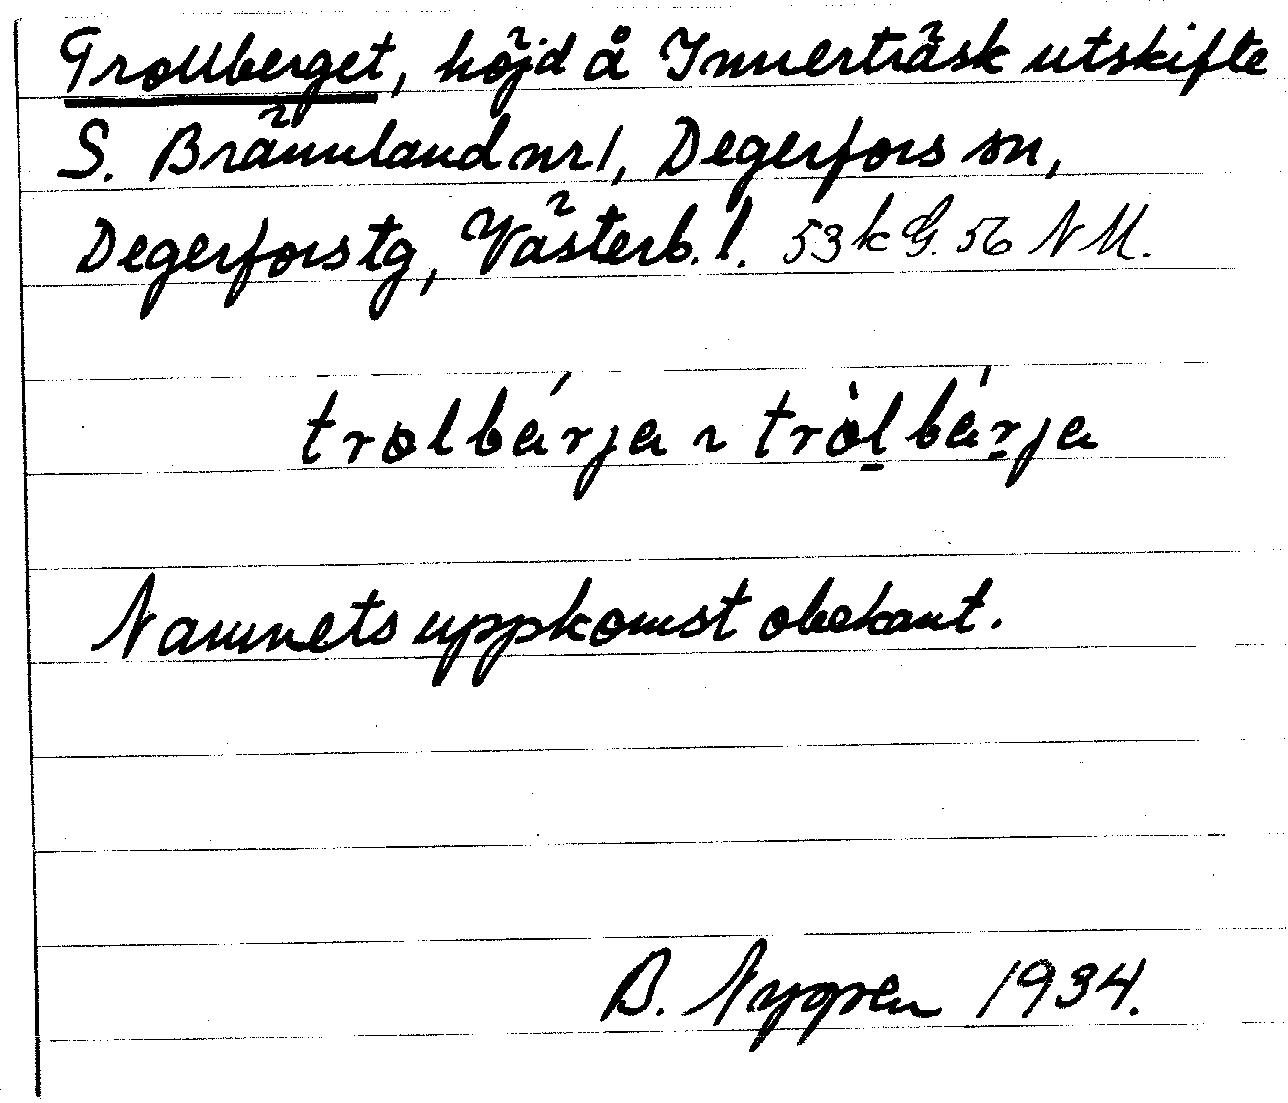 Trollberget, höjd å Innerträsk utskifte
S. Brännland nr 1, Degerfors sn,
Degerfors tg, Västerb. l. 53 k G. 56 NM.
trolbárja ~ tròl̠bár̠ja
Namnets uppkomst obekant.
B. Nygren 1934.